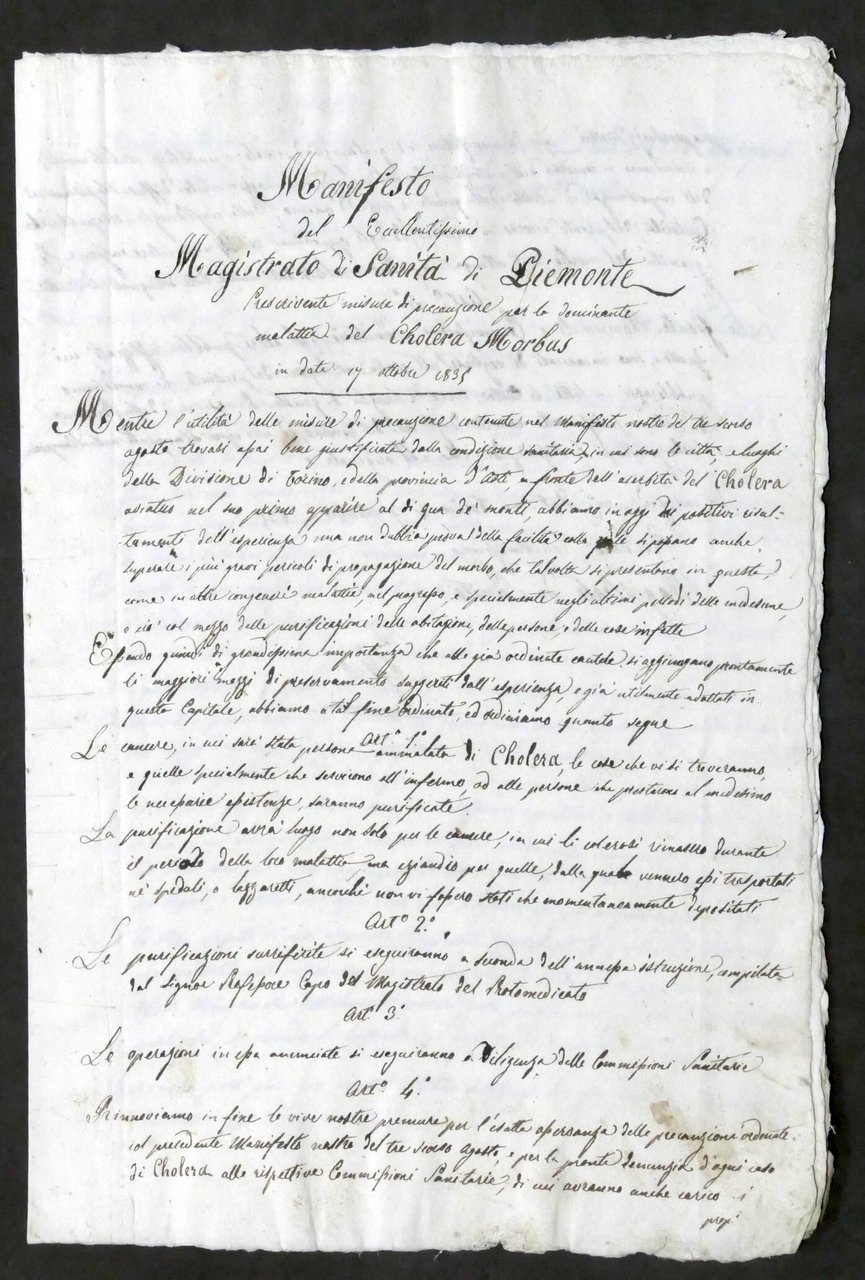 Manifesto
del Eccellentissimo
Magistrato di Sanità di Piemonte
Prescrivente misure di precauzione per la dominante
malattia del Cholera Morbus
in data 17. ottobre 1835
Mentre l'utilità delle misure di precauzione contenute nel Manifesto nostro del tre scorso
agosto trovasi assai bene giustificata dalla condizione sanitaria, in cui sono le città, e luoghi
della Divisione di Torino, e della provincia d'Asti, a fronte dell'acerbità del Cholera
asiatico nel suo primo apparire al di qua de' monti, abbiamo in oggi dai positivi risul-
tamenti dell'esperienza una non dubbia prova della facilità colla quale si possano anche
superare i più gravi pericoli di propagazione del morbo, che talvolta si presentano in queste,
come in altre congeneri malattie, nel progresso e specialmente negli ultimi periodi delle medesime,
e ciò col mezzo delle purificazioni delle abitazioni, delle persone, e delle cose infette
Essendo quindi di grandissima importanza che alle già ordinate cautele si aggiungano prontamente
li maggiori mezzi di preservamento suggeriti dall'esperienza, e già utilmente adottati in
questa Capitale, abbiamo a tal fine ordinato, ed ordiniamo quanto segue
Artº 1º
Le camere, in cui sarà stata persona ammalata di Cholera, le cose che vi si troveranno,
e quelle specialmente che servirono all'infermo, od alle persone che prestarono al medesimo
le necessarie assistenze, saranno purificate.
La purificazione avrà luogo non solo per le camere, in cui li colerosi rimasero durante
il periodo della loro malattia, ma eziandio per quelle, dalla quale vennero essi trasportati
ne' spedali, o lazzaretti, ancorché non vi fossero stati che momentaneamente depositati
Artº 2º
Le purificazioni surriferite si eseguiranno a seconda dell'annessa istruzione, compilata
dal Signor Professore Capo del Magistrato del Protomedicato
Artº 3º
Le operazioni in essa annunciate si eseguiranno a Diligenza delle Commissioni Sanitarie
Artº 4º
Rinnoviamo in fine le vive nostre premure per l'esatta osservanza delle precauzioni ordinate
col precedente Manifesto nostro del tre scorso Agosto, e per la pronta denunzia d'ogni caso
di Cholera alle rispettive Commissioni Sanitarie, di cui avranno anche carico i